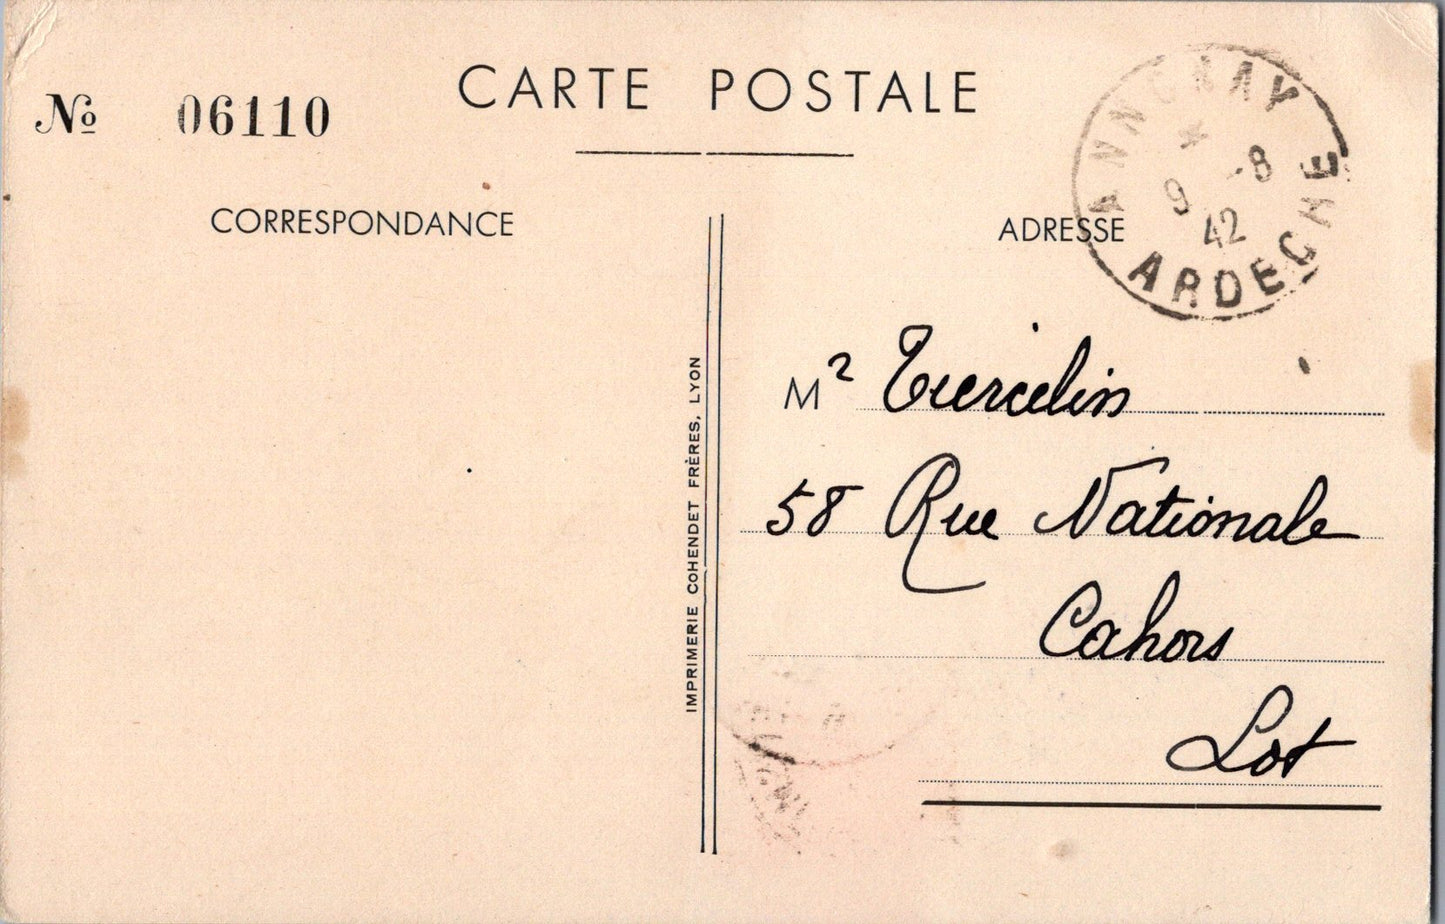 CARTE POSTALE
№ 06110
CORRESPONDANCE
ADRESSE
ANNONAY
* 9 -8
42
ARDECHE
Mr Tiercelin
58 Rue Nationale
Cahors
Lot
IMPRIMERIE COHENDET FRÈRES, LYON